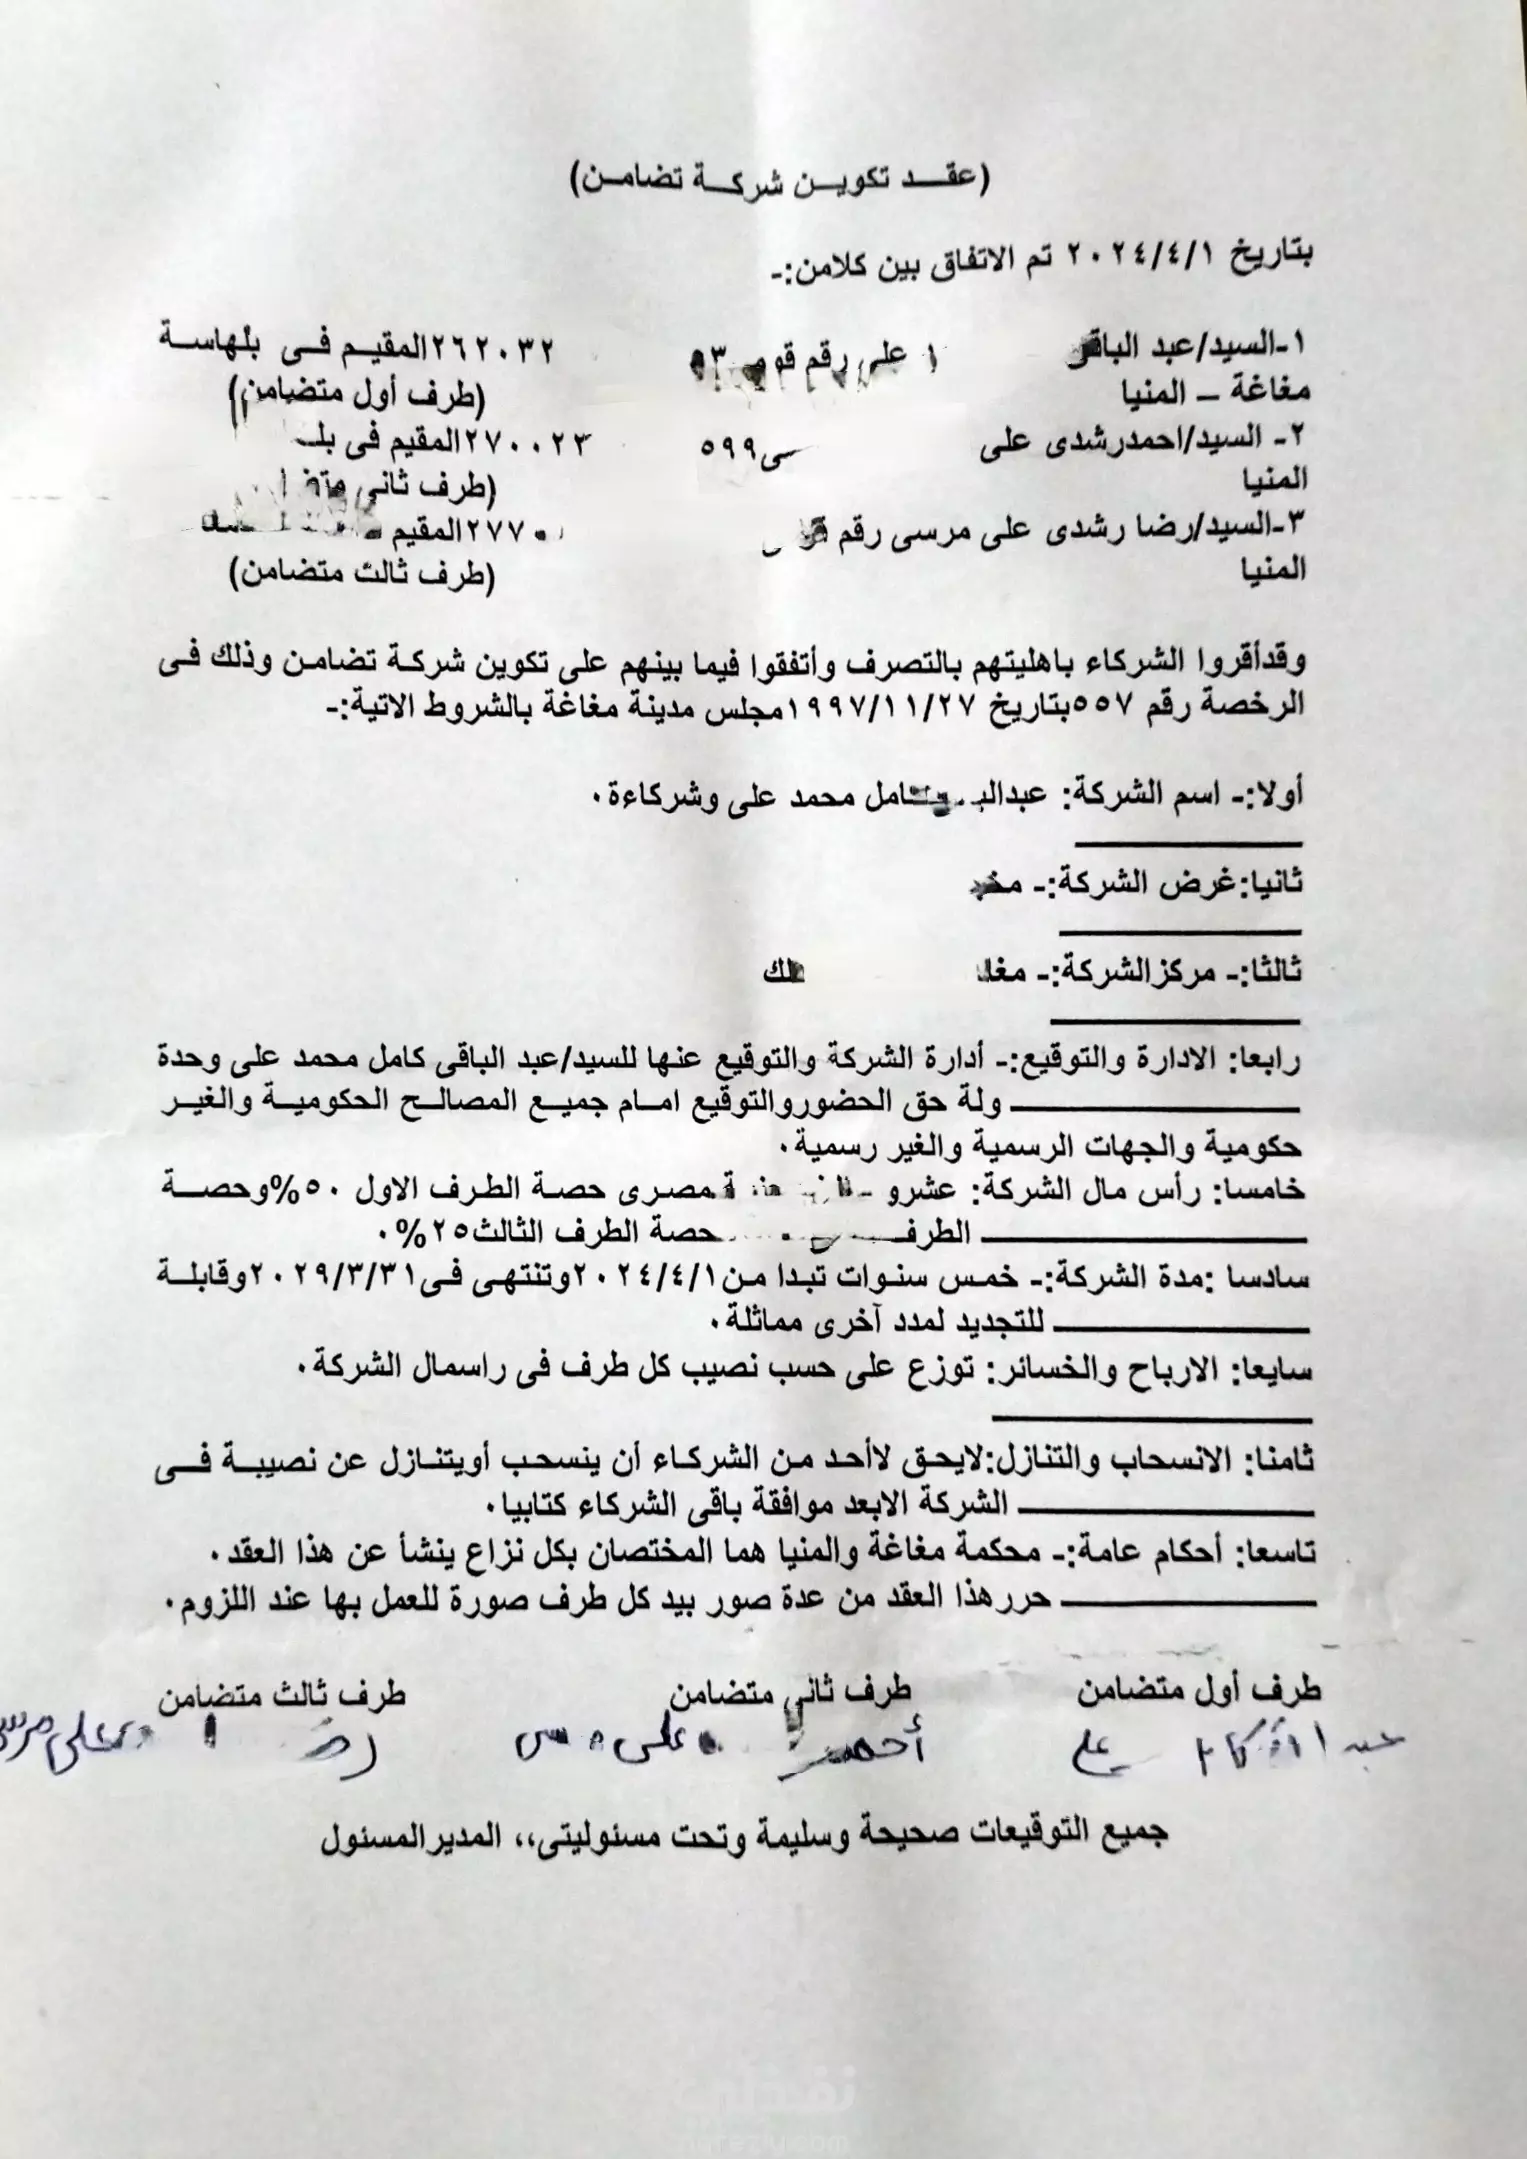 (عقـــد تكويـــن شركـــة تضامـن)
بتاريخ ٢٠٢٤/٤/١ تم الاتفاق بين كلامن:ـ
١-السيد/عبد الباقى على رقم قومى ٢٦٢٠٣٢المقيـم فـى بلهاســة
مغاغة – المنيا (طرف أول متضامن)
٢- السيد/احمدرشدى على ٥٩٩ ٢٧٠٠٢٣المقيم فى
المنيا (طرف ثانى
٣-السيد/رضا رشدى على مرسى رقم ٢٧٧٠المقيم
المنيا (طرف ثالث متضامن)
وقدأقروا الشركاء باهليتهم بالتصرف وأتفقوا فيما بينهم على تكوين شركـة تضامـن وذلك فـى
الرخصة رقم ٥٥٧بتاريخ ١٩٩٧/١١/٢٧مجلس مدينة مغاغة بالشروط الاتية:ـ
أولا:ـ اسم الشركة: محمد على وشركاءة٠
ثانيا:غرض الشركة:ـ
ثالثا:ـ مركزالشركة:ـ
رابعا: الادارة والتوقيع:ـ أدارة الشركة والتوقيع عنها للسيد/عبد الباقى كامل محمد على وحدة
ولة حق الحضوروالتوقيع امـام جميـع المصالـح الحكوميـة والغيـر
حكومية والجهات الرسمية والغير رسمية٠
خامسا: رأس مال الشركة: مصرى حصة الطرف الاول ٥٠%وحصـــة
حصة الطرف الثالث٢٥%٠
سادسا :مدة الشركة:ـ خمس سنوات تبدا من٢٠٢٤/٤/١وتنتهى فى٢٠٢٩/٣/٣١وقابلــة
للتجديد لمدد آخرى مماثلة٠
سايعا: الارباح والخسائر: توزع على حسب نصيب كل طرف فى راسمال الشركة٠
ثامنا: الانسحاب والتنازل:لايحق لاأحد من الشركـاء أن ينسحب أويتنـازل عن نصيبـة فــى
الشركة الابعد موافقة باقى الشركاء كتابيا٠
تاسعا: أحكام عامة:ـ محكمة مغاغة والمنيا هما المختصان بكل نزاع ينشأ عن هذا العقد٠
حررهذا العقد من عدة صور بيد كل طرف صورة للعمل بها عند اللزوم٠
طرف أول متضامن طرف ثانى متضامن طرف ثالث متضامن
على أحمد على مرسى رضا على مرسى
جميع التوقيعات صحيحة وسليمة وتحت مسئوليتى،، المديرالمسئول